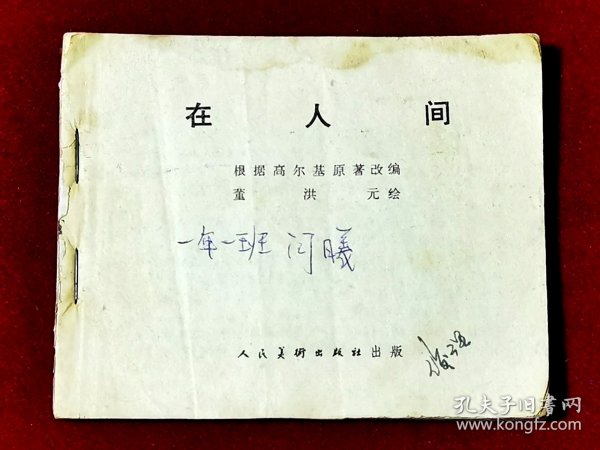 在人间
根据高尔基原著改编
董洪元绘
一年一班 闫曦
人民美術出版社出版
孔夫子旧書网
www.kongfz.com